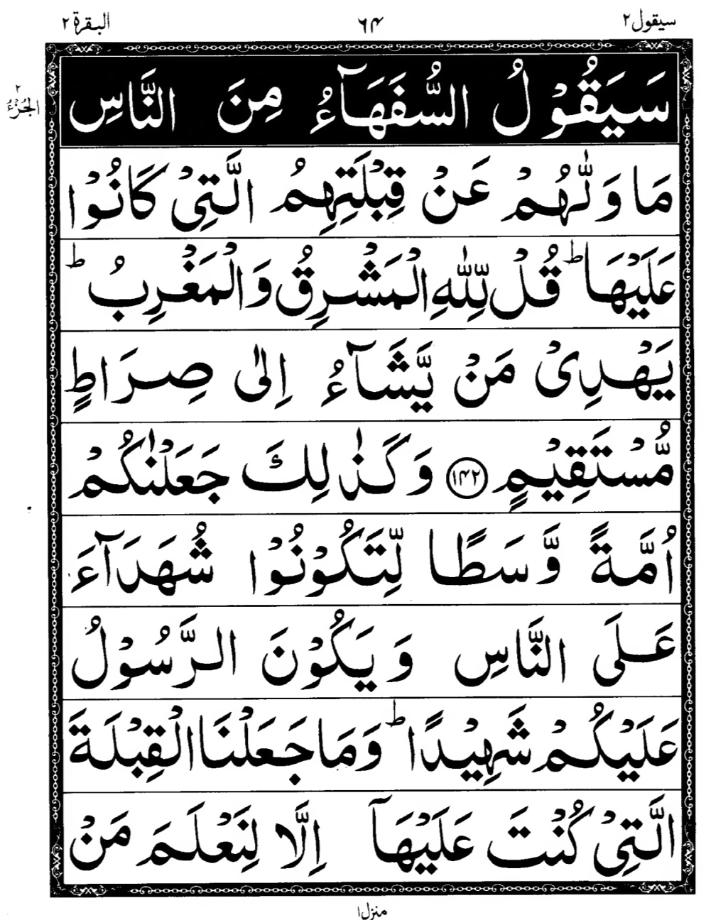 سیقول ۲
۶۴
البقرة ۲
۲
الجزء
سَيَقُوْلُ السُّفَهَآءُ مِنَ النَّاسِ
مَا وَلّٰىهُمْ عَنْ قِبْلَتِهِمُ الَّتِيْ كَانُوْا
عَلَيْهَا ؕ قُلْ لِّلّٰهِ الْمَشْرِقُ وَالْمَغْرِبُ ؕ
يَهْدِيْ مَنْ يَّشَآءُ اِلٰى صِرَاطٍ
مُّسْتَقِيْمٍ ۱۴۲ وَكَذٰلِكَ جَعَلْنٰكُمْ
اُمَّةً وَّسَطًا لِّتَكُوْنُوْا شُهَدَآءَ
عَلَى النَّاسِ وَيَكُوْنَ الرَّسُوْلُ
عَلَيْكُمْ شَهِيْدًا ؕ وَمَا جَعَلْنَا الْقِبْلَةَ
الَّتِيْ كُنْتَ عَلَيْهَآ اِلَّا لِنَعْلَمَ مَنْ
منزل ۱